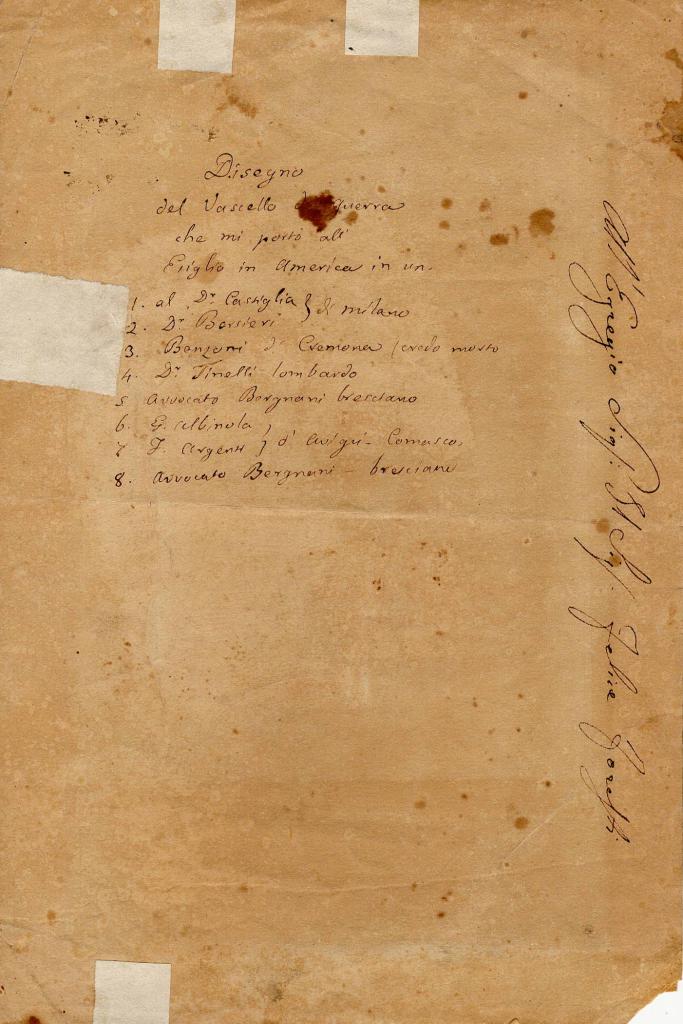 Disegno
del Vascello di guerra
che mi portò all'
Esiglio in America in un.
1. al Dr. Castiglia } di milano
2. Dr Borsieri
3. Benzoni di Cremona (credo morto
4. Dr. Tinelli lombardo
5 avvocato Bergnani bresciano
6. G. albinola }
7 F. argenti } d' Viggù - Comasco,
8. avvocato Bergnani - bresciano
All' Egregio Sig.r Felice